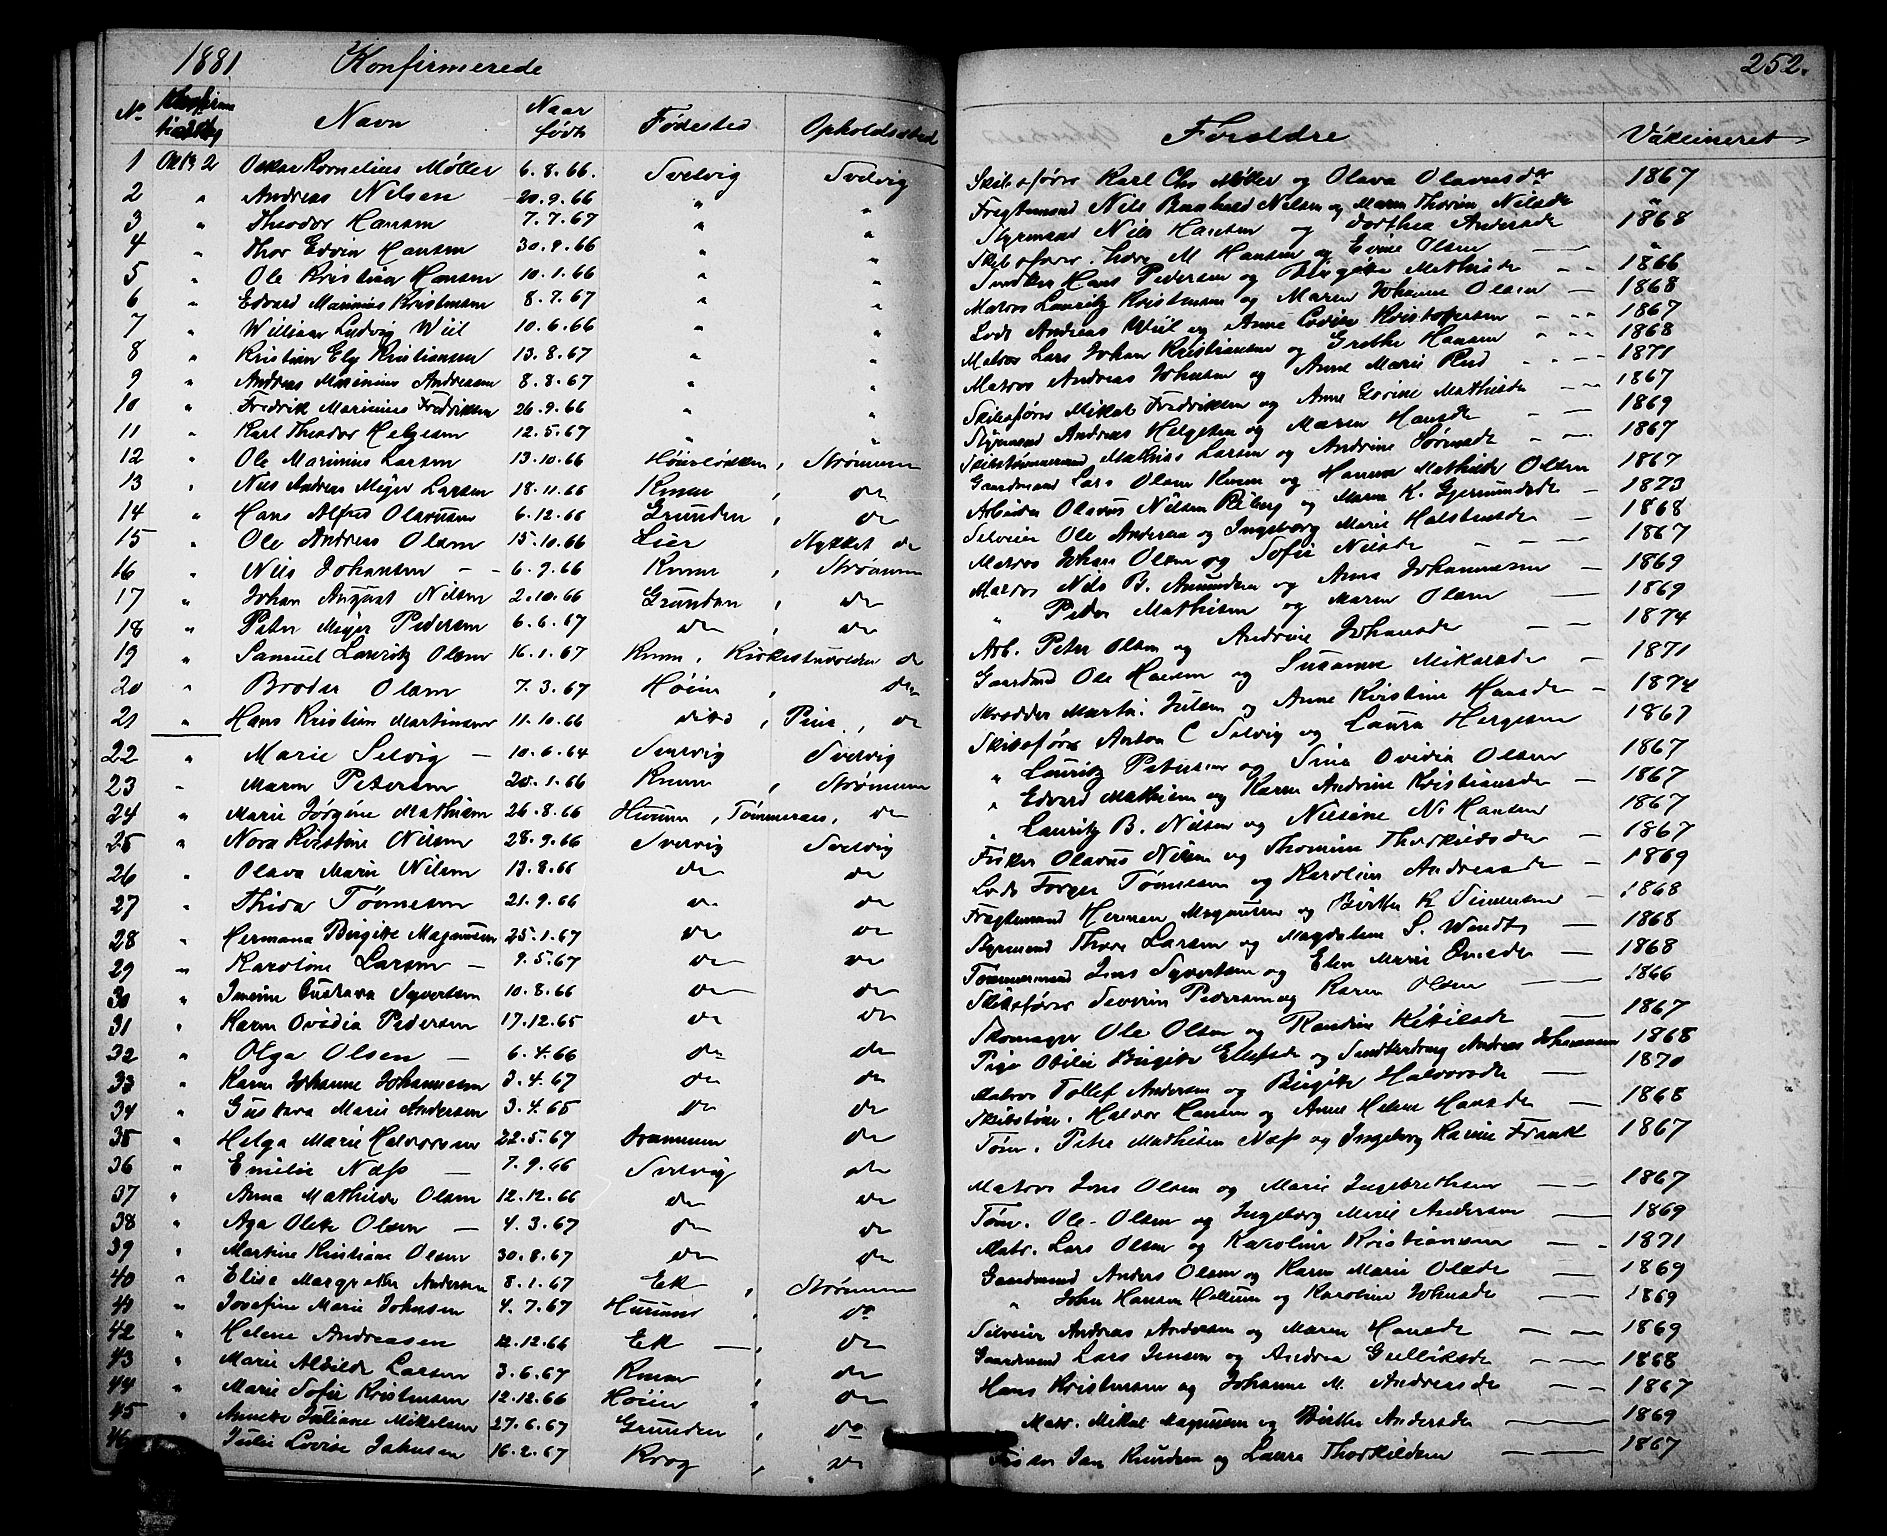 1881 Konfirmerede
No Navn Naar født Fødested Opholdssted
1 Oktb 2 Oskar Kornelius Møller 6.8.66. Svelvig Svelvig
2 " Andreas Nilsen 20.9.66 " "
3 " Theodor Hansen 7.7.67 " "
4 " Thor Edvin Hansen 30.9.66 " "
5 " Ole Kristian Hansen 10.1.66 " "
6 " Edvard Marinius Kristensen 8.7.67 " "
7 " William Ludvig Wiil 10.6.66 " "
8 " Kristian Elg Kristiansen 13.8.67 " "
9 " Andreas Marinius Andreasen 8.8.67 " "
10 " Fredrik Marinius Fredriksen 26.9.66 " "
11 " Karl Theodor Helgesen 12.5.67 " "
12 " Ole Marinius Larsen 13.10.66 , Strømmen
13 " Nils Andreas Mejer Larsen 18.11.66 Knem , do
14 " Hans Alfred Olavusen 6.12.66 Grunden , do
15 " Ole Andreas Olsen 15.10.66 Lier do
16 " Nils Johansen 6.9.66 Knem , Strømmen
17 " Johan August Nilsen 2.10.66 Grunden , do
18 " Peter Mejer Pedersen 6.6.67 do , do
19 " Samuel Lauritz Olsen 16.1.67 Knem , do
20 " Broder Olsen 7.3.67 Høien , do
21 " Hans Kristian Martinsen 11.10.66 dito , do
22 " Marie Selvig 10.6.64 Svelvig Svelvig
23 " Maren Petersen 20.1.66 Knem , Strømmen
24 " Marie Jørgine Mathisen 26.8.66 , Tømmeraas, do
25 " Nora Kristine Nilsen 28.9.66 Svelvig Svelvig
26 " Olava Marie Nilsen 13.8.66 do do
27 " Thida Tønnesen 21.9.66 do do
28 " Hermana Birgitte Magnusen 25.1.67 do do
29 " Karoline Larsen 9.5.67 do do
30 " Gustava Syvertsen 10.8.66 do do
31 " Karen Ovidia Pedersen 17.12.65 do do
32 " Olga Olsen 6.4.66 do do
33 " Karen Johanne Johannesen 3.4.67 do do
34 " Gustava Marie Andersen 3.4.65 do do
35 " Helga Marie Halvorsen 22.5.67 Drammen do
36 " Emilie Næss 7.9.66 Svelvig do
37 " Anna Mathilde Olsen 12.12.66 do do
38 " Aga Olette Olsen 4.3.67 do do
39 " Martine Kristiane Olsen 30.8.67 do do
40 " Elise Margrethe Andersen 8.1.67 Ek , Strømmen
41 " Josefine Marie Johnsen 4.7.67 Hurum , do
42 " Helene Andreasen 12.12.66 Ek , do
43 " Marie Alvilde Larsen 3.6.67 Knem , do
44 " Marie Sofie Kristensen 12.12.66 Høien , do
45 " Annette Juliane Mikelsen 27.6.67 Grunden , do
46 Julie Lovise Jahnsen 16.2.67 Krog , do
252.
Forældre Vakcineret
Skibsfører Karl Chr Møller og Olava Olavusdtr 1867
Fragtemand Nils Nilsen og Maren Thorine Nilsdr "
Styrmand Nils Hansen og Dorthea Andersdr 1868
Skibsfører Thor M Hansen og Evine Olsen "
Hans Pedersen og Birgitte Mathisdr 1866
Matros Lauritz Kristensen og Maren Johanne Olsen 1868
Lods Andreas Wiil og Anne Lovise Kristofersen 1867
Matros Lars Johan Kristiansen og Grethe Hansen 1868
Matros Andreas Johnsen og Anne Marie Rud 1871
Skibsfører Mikal Fredriksen og Anne Gurine Mathisdr 1867
Styrmand Andreas Helgesen og Maren Hansdr 1869
Skibstømmermand Mathias Larsen og Andrine Sørensdr 1867
Gaardmand Lars Olsen Knem og Hanna Mathilde Olsen 1867
Arbeider Olavus Nilsen og Maren K. Gjermundsdr 1873
Selveier Ole Andersen og Ingeborg Marie Halstensdr 1868
Matros Johan Olsen og Sofie Nilsdr 1867
Matros Nils B. Amundsen og Anna Johannesen 1869
" Peder Mathisen og Maren Olsen 1869
Arb. Peter Olsen og Andrine Johansdr 1874
Gaardmd Ole Hansen og Susanne Mikalsdr 1871
Skrædder Martin Julsen og Anne Kristine Hansdr 1874
Skibsfører Anton C Selvig og Laura Hergesen 1867
" Lauritz Petersen og Sina Ovidia Olsen 1867
" Edvard Mathisen og Karen Andrine Kristiansdr 1867
" Lauritz B. Nilsen og Nilsine N. Hansen 1867
Fisker Olavus Nilsen og Thomine Thorkildsdr 1867
Lods Torger Tønnesen og Karoline Andreasdr 1869
Fragtemand Herman Magnusen og Birthe K Simensen 1868
Styrmand Thore Larsen og Magdalene S. Wendt 1868
Tømmermand Jens Syvertsen og Elen Marie 1868
Skibsfører Severin Pedersen og Karen Olsen 1866
Skomager Ole Olsen og Randine Ketilsdr 1867
Pige Otilie Birgitte Ellefsdr og Andreas Johannesen 1868
Matros Tollef Andersen og Birgitte Halvorsdr 1870
Skibstøm. Halvor Hansen og Anne Helene Hansdr 1868
Tøm. Peter Mathisen Næss og Ingeborg Karine Frantz 1867
Matros Jens Olsen og Marie Ingebrethsen 1867
Tøm. Ole Olsen og Ingeborg Marie Andersen 1869
Matr. Lars Olsen og Karoline Kristiansen 1871
Gaardmand Anders Olsen og Karen Marie Olsdr 1869
" John Hansen og Karoline Johnsdr 1869
Selveier Andreas Andersen og Maren Hansdr 1869
Gaardmand Lars Jensen og Andrea Gulliksdr 1868
Hans Kristensen og Johanne M. Andreasdr 1867
Matr. Mikal Magnusen og Birthe Andersdr 1869
Jan Knudsen og Laura Thorkildsen 1867